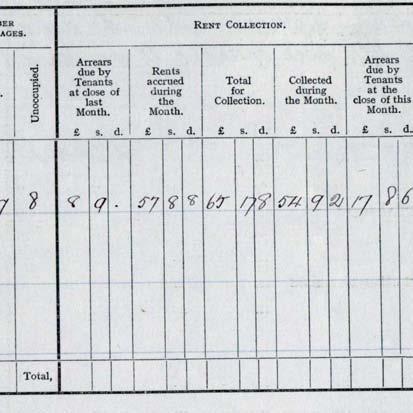 BER
AGES.
RENT COLLECTION.
Unoccupied.
Arrears due by Tenants at close of last Month.
Rents accrued during the Month.
Total for Collection.
Collected during the Month.
Arrears due by Tenants at the close of this Month.
£ s. d. £ s. d. £ s. d. £ s. d. £ s. d.
7 8 8 9 . 57 8 8 65 17 8 54 9 2 17 8 6
Total,